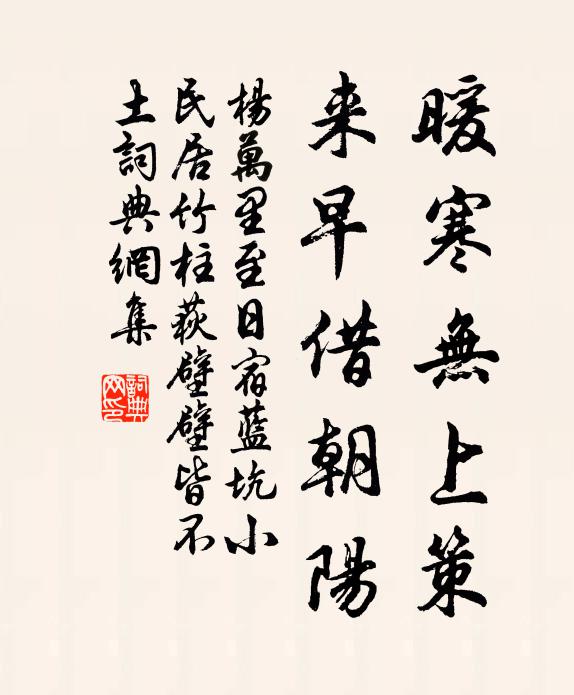 暖寒無上策
来早借朝陽
楊萬里至日宿藍坑小
民居竹柱萩壁壁皆不
土詞典網集
詞典
网印